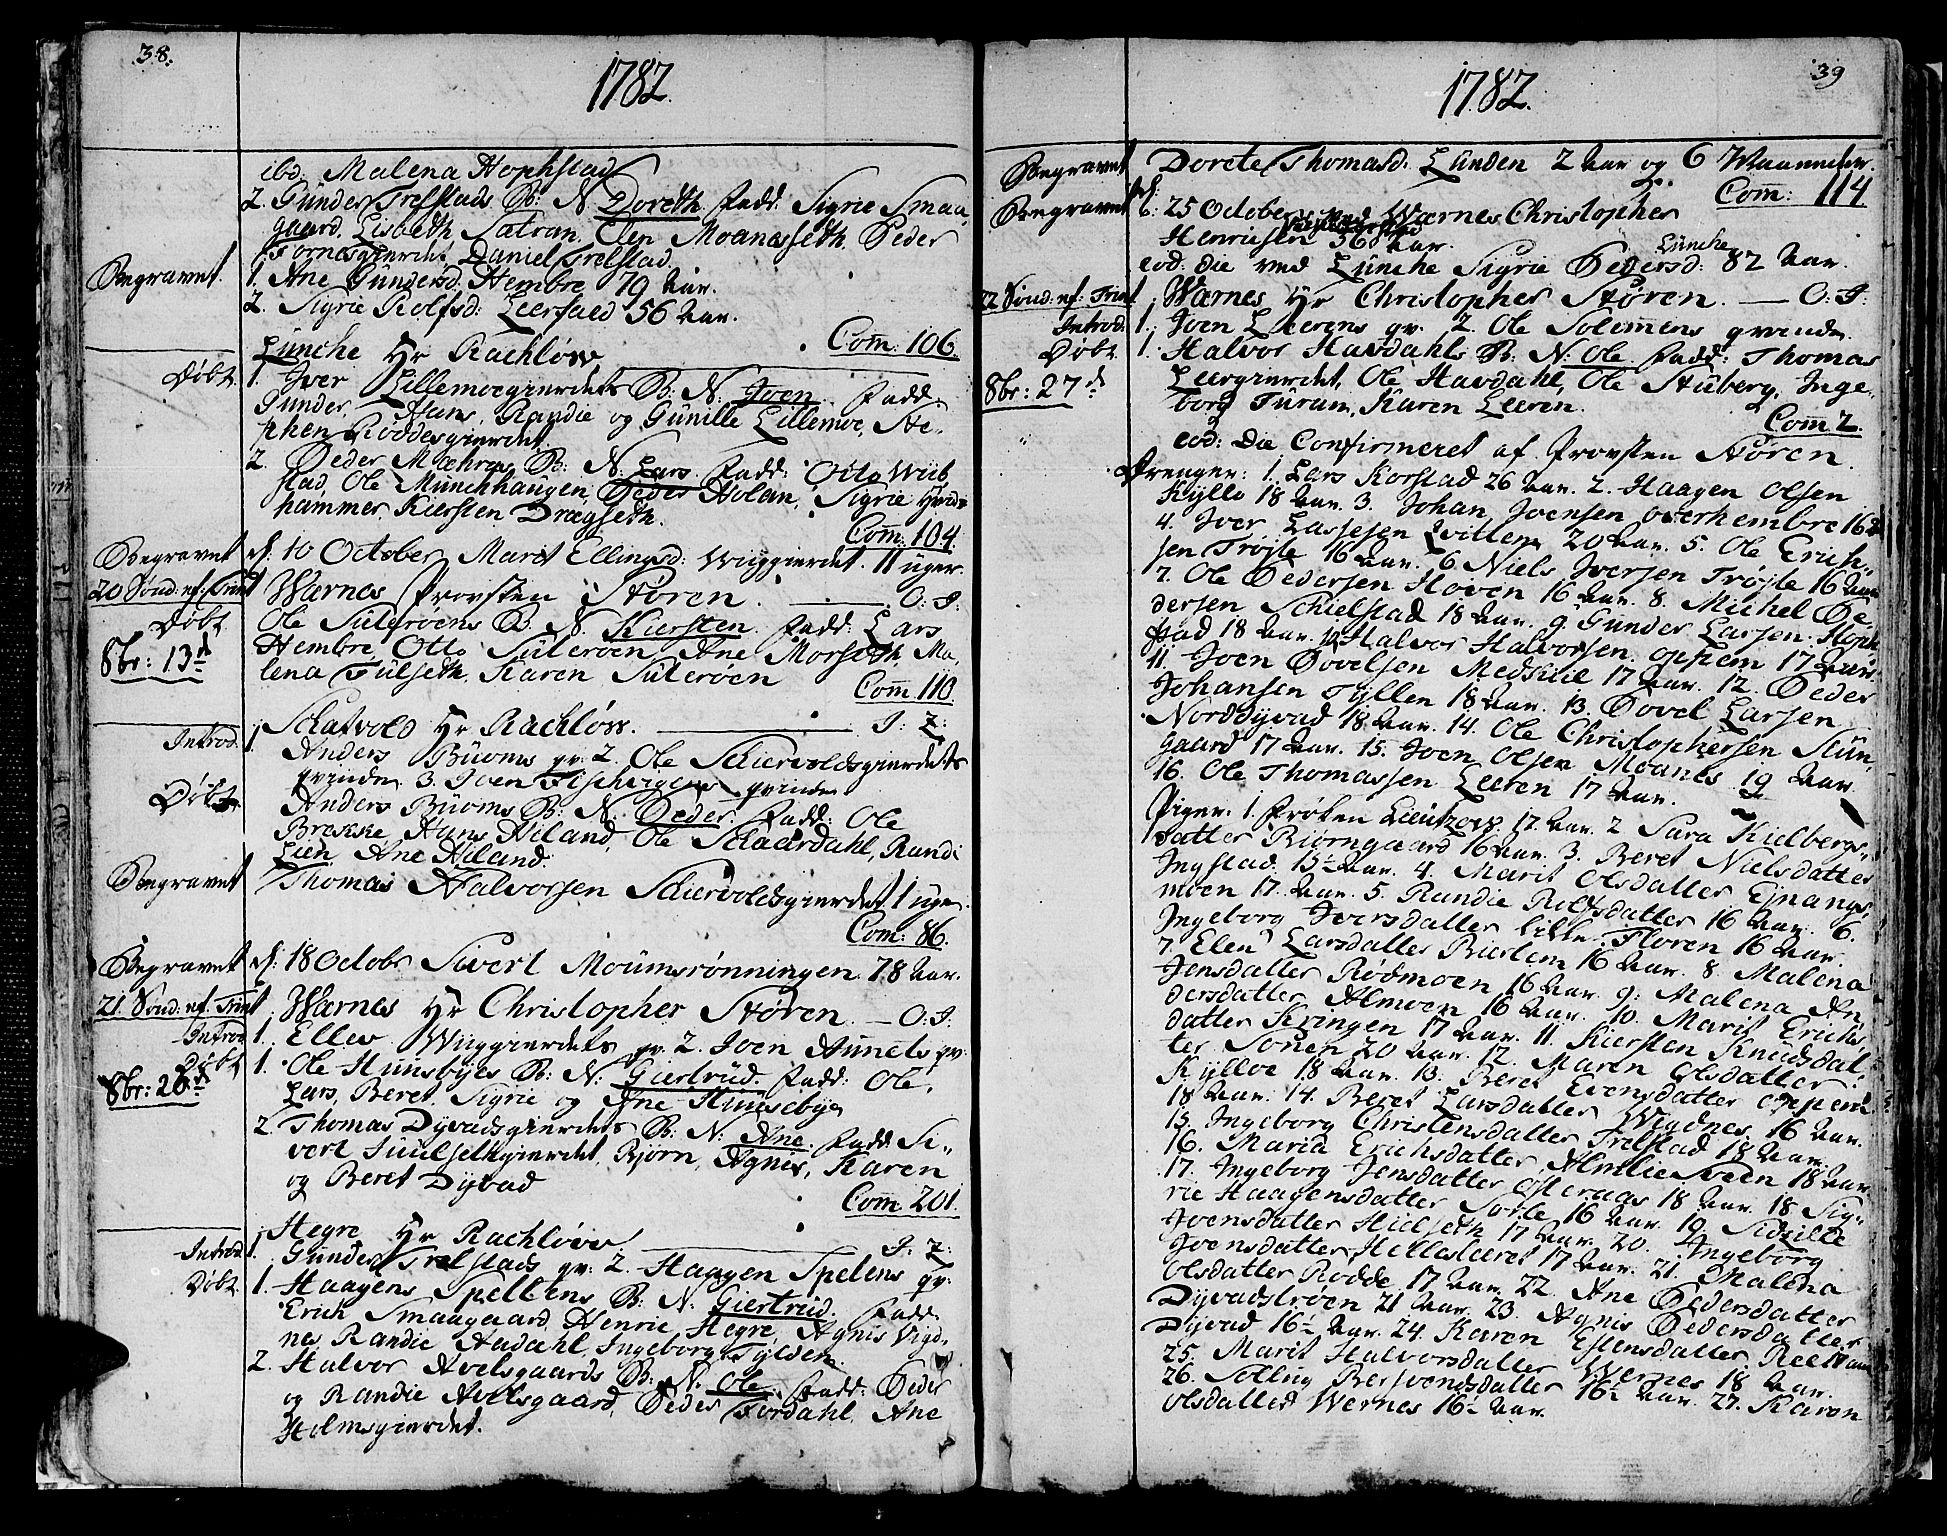 38.
1782.
ibd. Malena Hophstad
2. Gunder Trelstads B: N. Doreth. Fadd: Sigrie Smaa,
gaard, Lisbeth Satran, Elen Moanesseth, Peder
Fornesgierdet, Daniel Trelstad.
Begravet. 1. Ane Gundersd: Hembre 79 Aar.
2. Sigrie Rolfsd: Leerfald 56 Aar.
Com: 106.
Lünche Hr Rachløw
Døbt 1. Iver Lillemoegierdets B: N: Joen. Fadd:
Gunder, Hans, Randie og Gunille Lillemoe, Ste,
phen Røddesgierdet.
2. Peder Mæhres B: N: Lars Fadd: Otto Wiib
stad, Ole Münchhaugen, Peder Holan, Sigrie Hvide
hammer, Kiersten Dragseth.
Com: 104.
Begravet d: 10 October Marit Ellingsd: Wiiggierdet. 11 uger.
20 Sönd: ef: Trinit Wærnes Provsten Støren. — O: I:
Døbt Ole Suterøens B: N. Kiersten. Fadd: Lars
8br: 13d Hembre, Otto Suterøen, Ane Morseth, Ma,
lena Fulseth, Karen Suterøen
Com 110.
Schatvold Hr Rachløw. — I: Z:
Introd. 1. Anders Büoms qv. 2. Ole Schiervoldsgierdets
qvinde 3. Joen Fischvigens qvinde
Døbt Anders Büoms B: N. Peder. Fadd: Ole
Brekke, Hans Hiland, Ole Schaardahl, Randi
Lien, Ane Hiland.
Begravet Thomas Halvorsen Schiervoldsgierdet 1 uge.
Com: 86.
Begravet d: 18 Octobr Sivert Moumsrønningen 78 Aar.
21 Sönd: ef: Trinit Wærnes Hr Christopher Støren. — O: I:
Introd 1. Elles Wiiggierdets qv. 2. Joen Aunets qv:
Døbt 1. Ole Hunsbyes B: N: Giertrud. Fadd: Ole,
8br: 20d Lars, Beret, Sigrie og Ane Hunsebye
2. Thomas Dyvadsgierdets B: N: Ane. Fadd: Si,
vert Juulsethgierdet, Biørn, Agnis, Karen
og Beret Dyvad
Com 201.
Hegre Hr Rachløw — I: Z:
Introd 1. Gunder Trelstads qv: 2. Haagen Spelens qv:
Døbt. 1. Haagens Speltens B: N: Giertrud. Fadd:
Erich Smaagaard, Henric Hegre, Agnis Vigd,
nes, Randie Aadahl, Ingeborg Tylden.
2. Halvor Avelsgaards B: N: Ole. Fadd: Peder
og Randie Avelsgaard, Peder Fordahl, Ane
Holmsgierdet.
39
1782.
Begravet Dorete Thomasd: Lunden 2 Aar og 6 Maaneder.
Com: 114
Begravet d: 25 October Wærnes Christopher
Henricsen 56 Aar.
eod: die ved Lünche Sigrie Pedersd: Lünche 82 Aar.
22 Sönd: ef: Trinit Wærnes Hr Christopher Støren. — O: I:
Introd. 1. Joen Leerens qv. 2. Ole Solemens qvinde
Døbt 1. Halvor Havdahls B: N: Ole. Fadd: Thomas
8br: 27d Leergierdet, Ole Havdahl, Ole Stuberg, Inge,
borg Turam, Karen Leeren.
Com 2.
eod: Die Confirmeret af Provsten Støren.
Drenger: 1. Lars Korstad 26 Aar. 2. Haagen Olsen
Kyllo 18 Aar. 3. Johan Joensen overhembre 16 A
4. Iver Lassesen Qvillen 20 Aar. 5. Ole Erich,
sen Trøjte 16 Aar. 6 Niels Iversen Trøjte 16 Aar
7. Ole Pedersen Hoven 16 Aar. 8. Michel Pe,
dersen Schielstad 18 Aar. 9. Gunder Larsen Hoph
stad 18 Aar. 10 Halvor Halvorsen oppem 17 Aar.
11. Joen Povelsen Medhue 17 Aar. 12. Peder
Johansen Tyllen 18 Aar. 13. Povel Larsen
Norddyvad 18 Aar. 14. Ole Christophersen Stün,
gaard 17 Aar. 15. Joen Olsen Moanes 19 Aar
16. Ole Thomassen Leeren 17 Aar.
Piger. 1. Frøken Lieutzow 17 Aar. 2 Sara Kielbergs,
datter Biørngaard 16 Aar. 3. Beret Nielsdatter
Ingstad. 15½ Aar. 4. Marit Olsdatter Ejnangs,
moen 17 Aar. 5. Randie Rolfsdatter 16 Aar. 6.
Ingeborg Iversdatter lille Floren 16 Aar.
7. Elen Larsdatter Biertem 16 Aar. 8. Malena
Jensdatter Rødmoen 16 Aar. 9: Malena An,
dersdatter Almoen 16 Aar. 10. Marit Erichs
datter Kringen 17 Aar. 11. Kiersten Knudsdat,
ter Sonen 20 Aar. 12. Maren Olsdatter
Kylloe 18 Aar. 13. Beret Evensdatter oppem
18 Aar. 14. Beret Larsdatter Wigdnes 16 Aar.
15. Ingeborg Christensdatter Trelstad 18 Aar
16. Maria Erichsdatter Sveen 18 Aar
17. Ingeborg Jensdatter osteraas 18 Aar. 18 Sig,
rie Haagensdatter Sotte 16 Aar. 19. Sidsille
Joensdatter Hielseth 17 Aar. 20. Ingeborg
Joensdatter Helleseret 17 Aar. 21. Malena
Olsdatter Rodde 17 Aar. 22. Ane Pedersdatter
Dyvadstrøen 21 Aar. 23. Agnis Pedersdatter
Dyvad 16½ Aar. 24. Karen Estensdatter Ree 17 Aar
25. Marit Halvorsdatter Wernes 18 Aar.
26. Solling Bersvendsdatter 16½ Aar. 27. Karen
Olsdatter Wernes 16½ Aar.